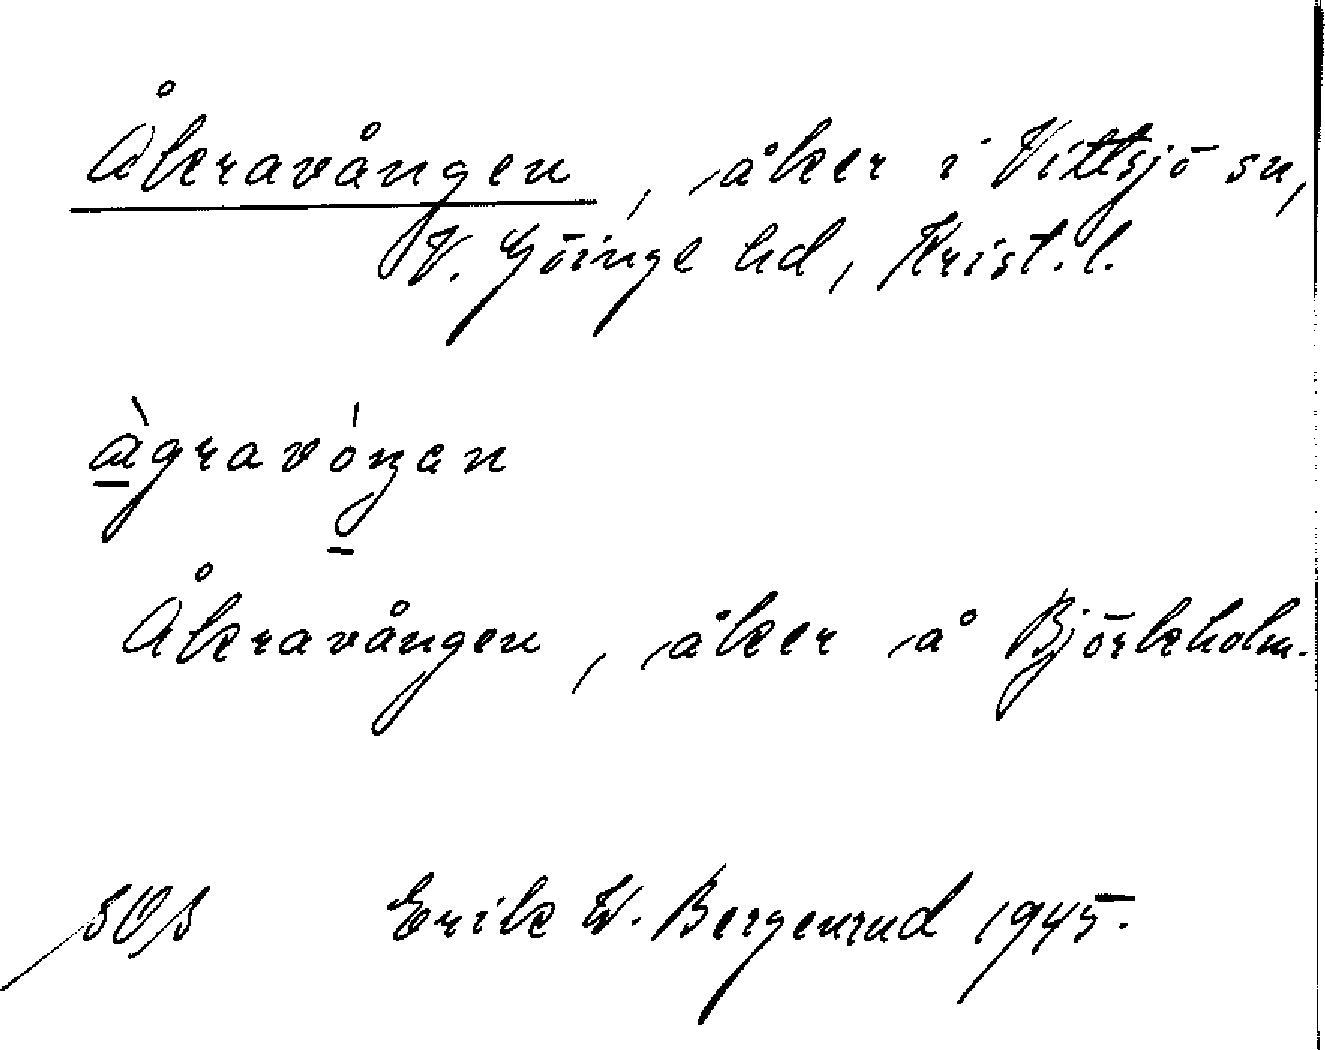 Åkravången, åker i Vittsjö sn,
V. Göinge hd, Krist. l.
àgravóŋan
Åkravången, åker å Björkeholm.
Erik W. Bergenrud 1945.